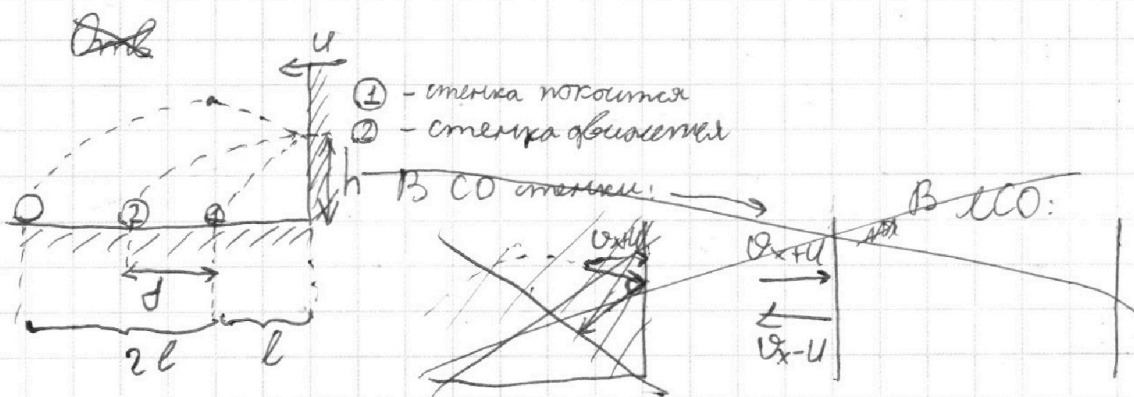 Отв
u
① - стенка покоится
② - стенка движется
h
В СО стенки:
В ЛСО:
② ①
d
2l
l
vₓ+u
vₓ+u
vₓ-u